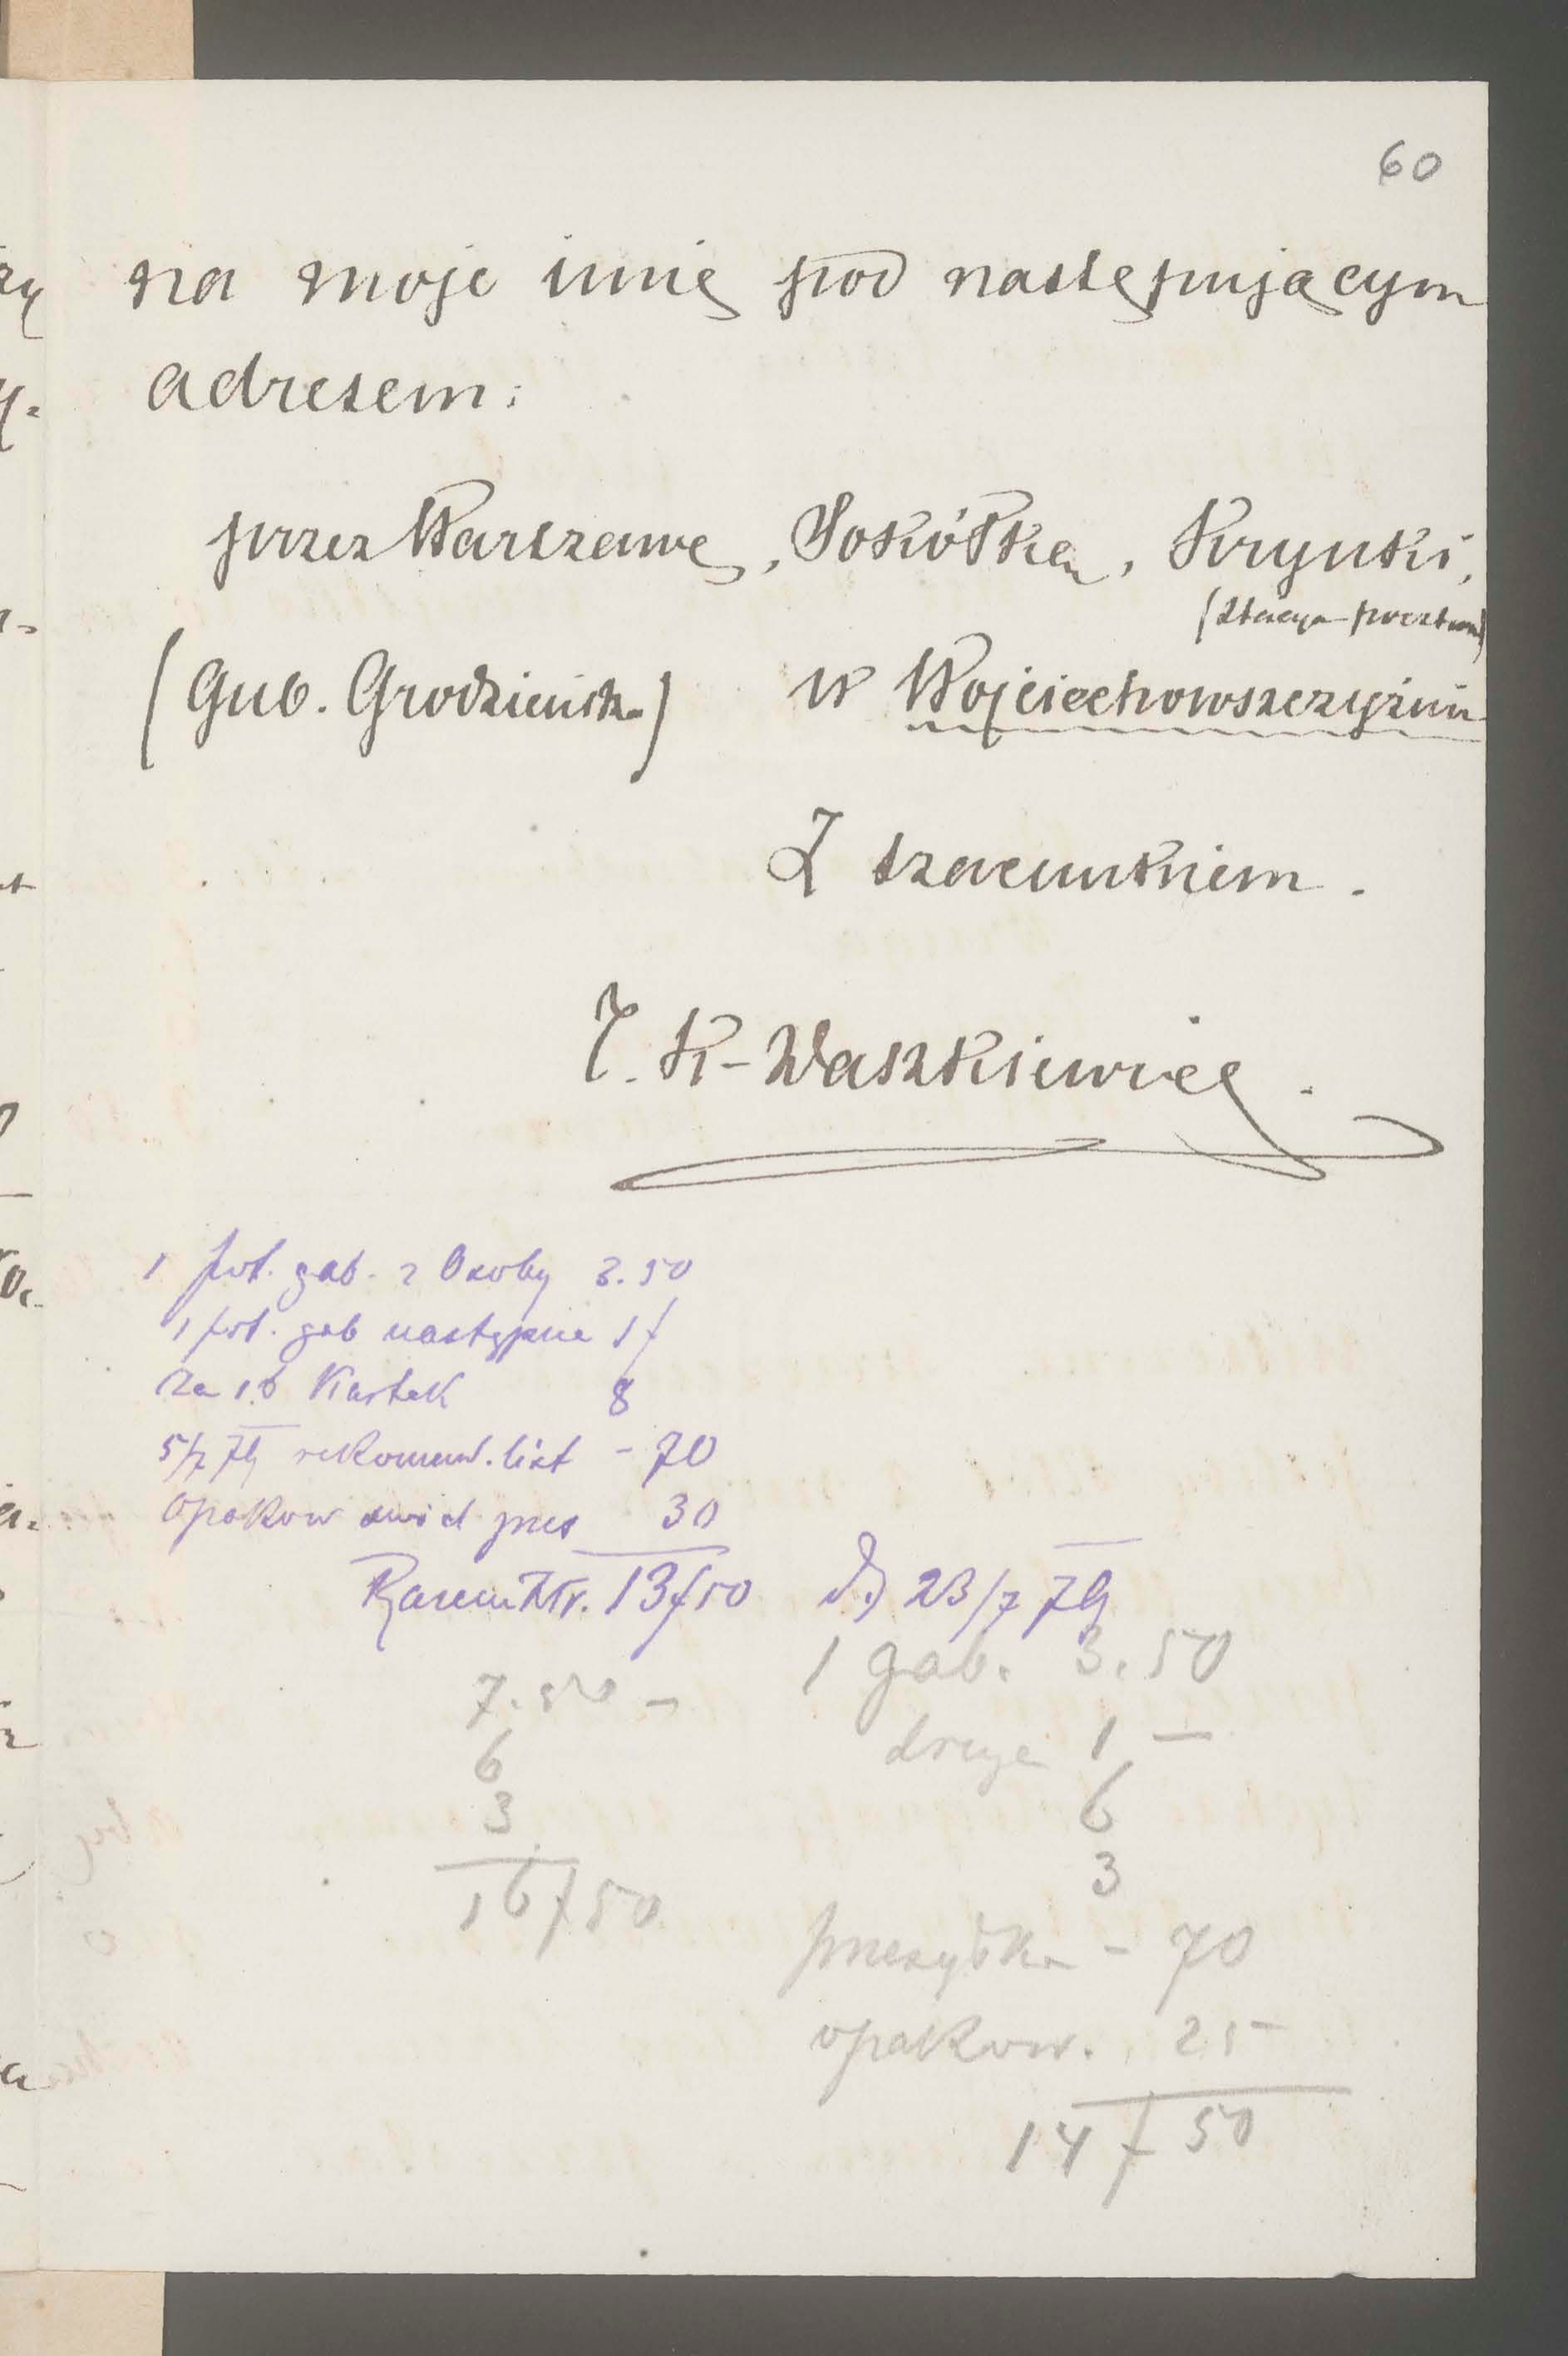 60
na moje imię pod następującym
adresem:
przez Warszawę, Sokółkę, Krynki,
(Stacya pocztowa)
(Gub. Grodzieńska) w Wojciechowszczyźnie
Z szacunkiem.
K-Waszkiewicz.
1 fot. gab. 2 Osoby 3.50
1 fot. gab następna 1f
za Kartek 8
5/7 79 rekomend. list - 70
Opakow 30
Razem Złr. 13f50 D. 23/7 79
7.50 -
1 gab. 3.50
6
druga 1 -
3
6
16f50
3
przesyłka - 70
opakow. 25
14f 50